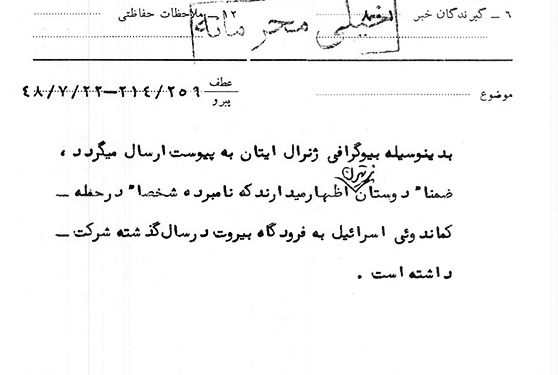 ٦ ــ گیرندگان خبر ٨٠٠ ١٢ ــ ملاحظات حفاظتی
خیلی محرمانه
موضوع عطف ٢١٤/٢٥٩ــ٤٨/٧/٢٢
پیرو
بدینوسیله بیوگرافی ژنرال ایتان به پیوست ارسال میگردد ،
ضمنا" دوستان اظهارمیدارندکه نامبرده شخصا" درحمله ــ
کماندوئی اسرائیل به فرودگاه بیروت درسال گذشته شرکت ــ
داشته است .